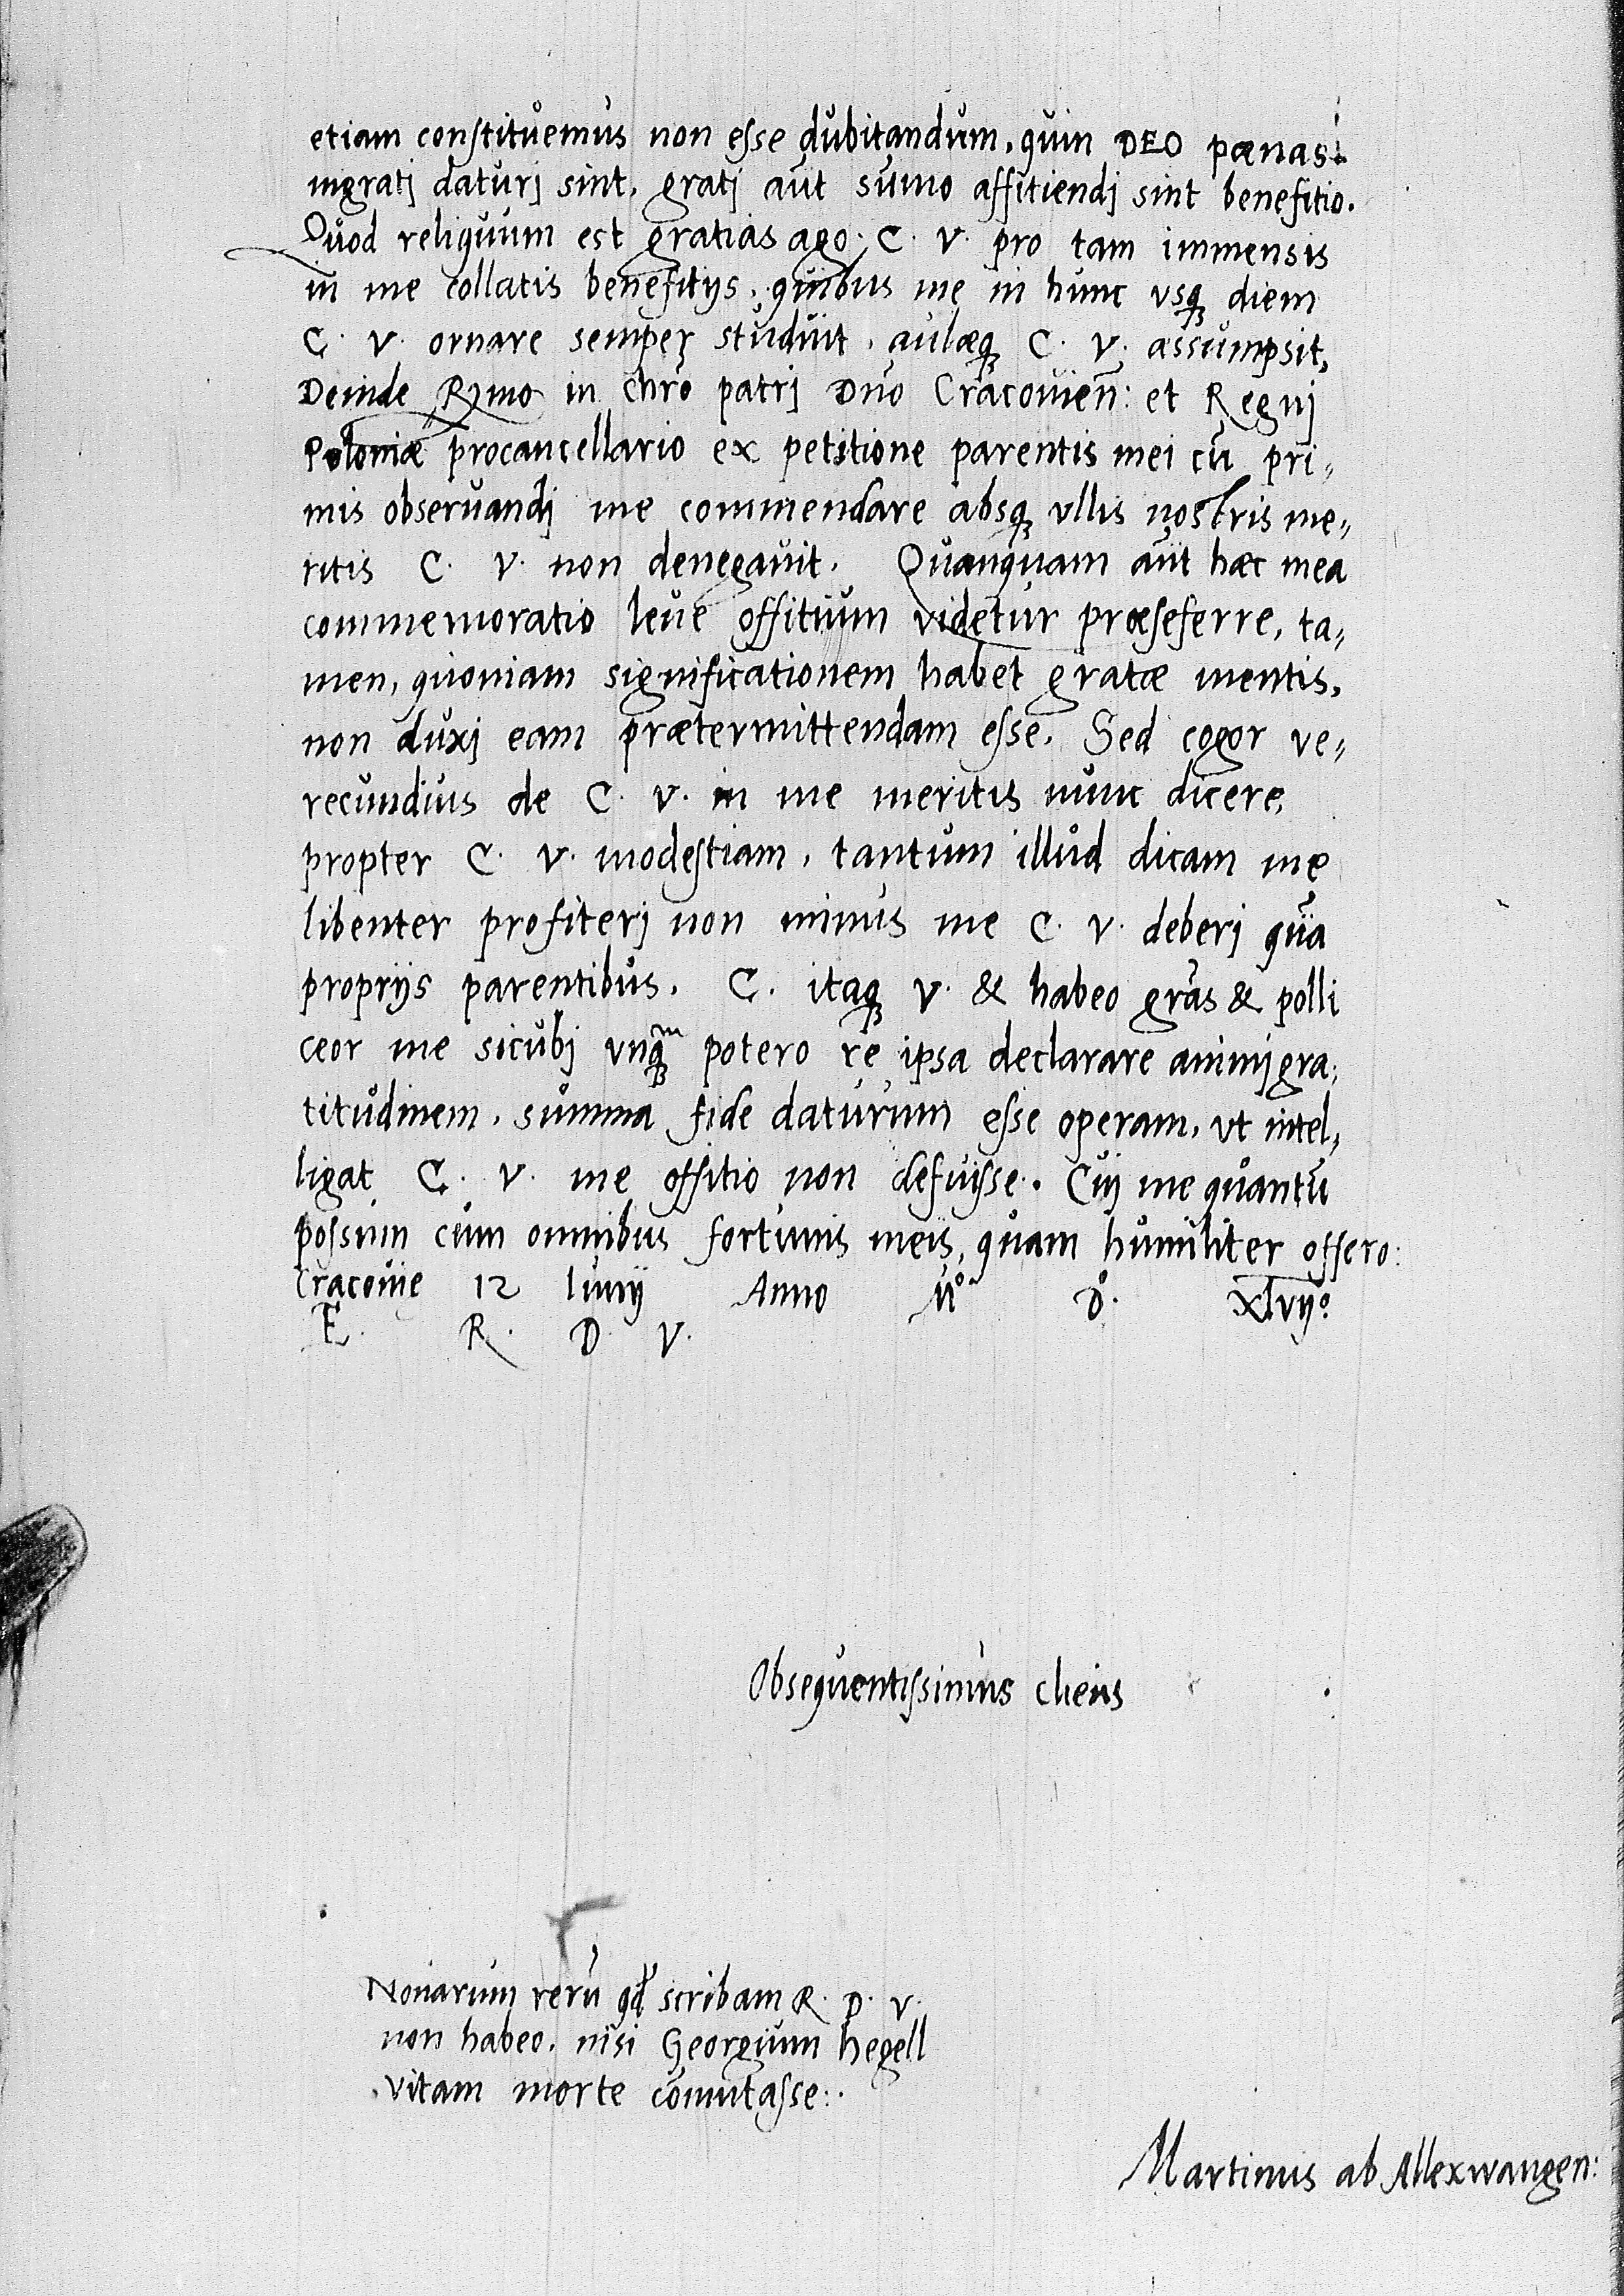 etiam constituemus non esse dubitandum, quin DEO pænas
ingratj daturj sint, gratj aūt sumo affitiendj sint benefitio.
Quod reliquum est gratias ago C. V. pro tam immensis
in me collatis benefitijs, quibus me in hunc vsq diem
C. V. ornare semper studuit, aulæq C. V. assumpsit,
Deinde Rmo in chrō patrj Dno Cracouien̄: et Regnj
Poloniæ procancellario ex petitione parentis mei cū pri„
mis obseruandj me commendare absq vllis nostris me„
ritis C. V. non denegauit. Quanquam aūt hæc mea
commemoratio leue offitium videtur præseferre, ta„
men, quoniam significationem habet gratæ mentis,
non duxj eam prætermittendam esse. Sed cogor ve„
recundius de C. V. in me meritis nunc dicere,
propter C. V. modestiam, tantum illud dicam me
libenter profiterj non minus me C. V. deberj quā
proprijs parentibus. C. itaq V. & habeo grās & polli
ceor me sicubj vnqm potero re ipsa declarare animj gra„
titudinem, summa fide daturum esse operam, vt intel„
ligat C. V. me offitio non defuisse. Cuj me quantū
possum cum omnibus fortunis meis, quam humiliter offero:
Cracouie 12 Iunij Anno Mo Do xlvijo
E. R. D. V.
Obsequentissimus cliens
Nouarum rerū qd scribam R. D. V.
non habeo, nisi Georgium hegell
vitam morte com̄utasse:.
Martinus ab Allexwangen: